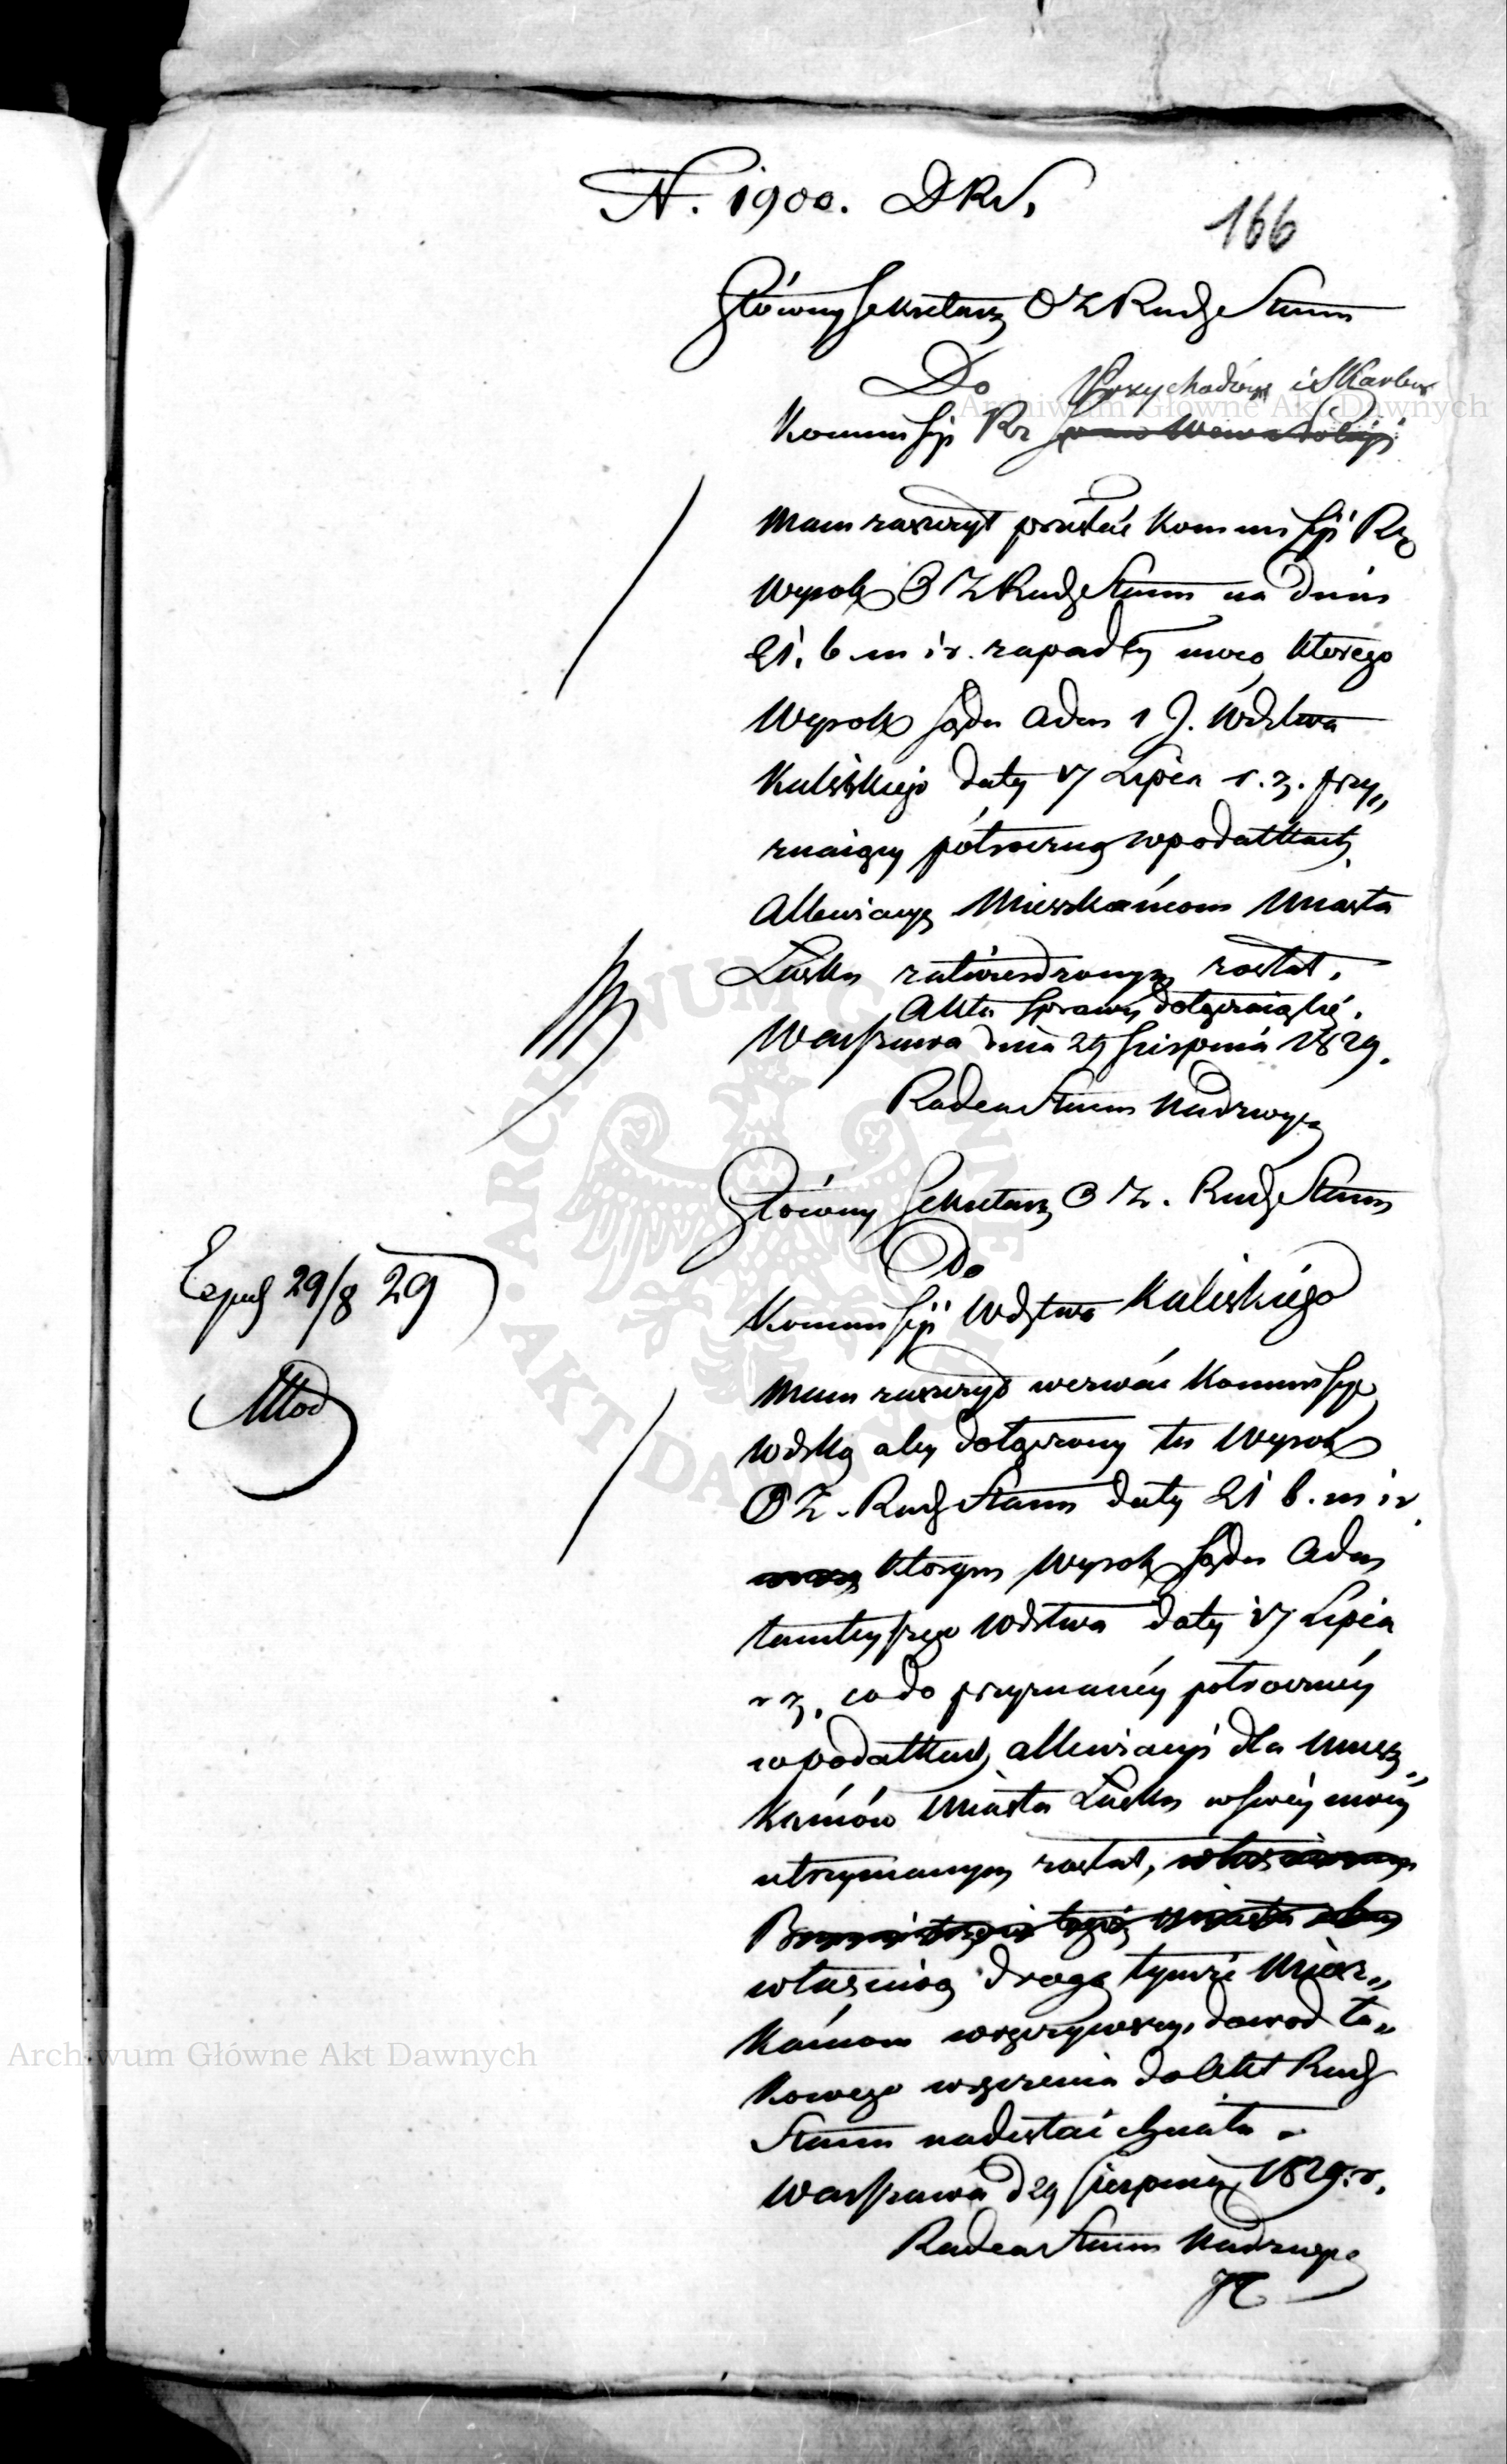 N. 1900. DRS.
166
Główny Sekretarz O Z Rady Stanu
Do Przychodów i Skarbu
Kommissyi Rz
Mam zaszczyt przesłać Kommissyi Rz
Wyrok O Z Rady Stanu na dniu
21. b. m i r. zapadły mocą którego
Wyrok Sądu Adm 1 J. Wdztwa
Kaliskiego daty 17 Lipca r. z. przy„
znaiący półroczną w podatkach
Allewiacyę Mieszkańcom Miasta
Łasku zatwierdzonym został.
Akta sprawy dołączaią się.
Warszawa dnia 29 Sierpnia 1829.
Radca Stanu Nadzwycz
Główny Sekretarz O Z. Rady Stanu
Do
Kommissyi Wdztwa Kaliskiego
Exped 29/8 29
Mam zaszczyt wezwać Kommissyę
Wdzką aby dołączony tu Wyrok
O Z. Rady Stanu daty 21 b. m i r.
którym Wyrok Sądu Adm
tamteyszego Wdztwa daty 17 Lipca
r z. co do przyznanéy półrocznéy
w podatkach allewiacyi dla Miesz„
kańców Miasta Łasku w swéy mocy
utrzymanym został,
właściwą drogą tymże Miesz„
kańcom wręczywszy, dowód ta„
kowego wręczenia do Akt Rady
Stanu nadesłać chciała.
Warszawa d 29 Sierpnia 1829. r.
Radca Stanu Nadzwycz